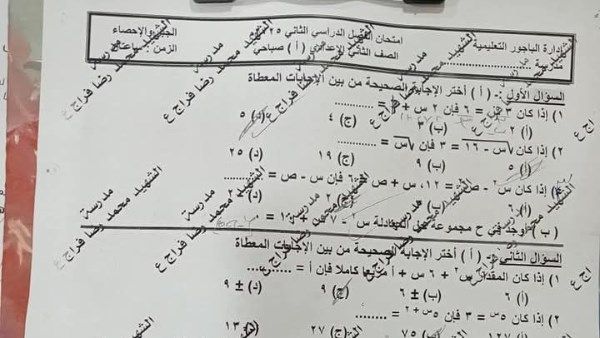 إدارة الباجور التعليمية
امتحان الفصل الدراسي الثاني ٢٠٢٥
الجبر والإحصاء
مدرسة ....................
الصف الثاني الإعدادي ( أ ) صباحي
الزمن :
السؤال الأول :- ( أ ) أختر الإجابة الصحيحة من بين الإجابات المعطاة
١) إذا كان = ٦ فإن ٢ س + = ..........
(أ) ٢ (ب) ٣ (ج) ٤ (د) ٥
٢) إذا كان √س - √١٦ = ٣ فإن √س = ..........
(أ) ٥ (ب) ٩ (ج) ١٩ (د) ٢٥
س٢ - ص٢ = ١٢، س + ص = ٦ فإن س - ص =
(أ) (ب) (د) ٢
( ب ) أوجد في ح مجموعة حل المعادلة س٢ - ٧ + ١٠ = ٠
السؤال الثاني :- ( أ ) أختر الإجابة الصحيحة من بين الإجابات المعطاة
١) إذا كان المقدار س٢ + ٦ س + أ مربعا كاملا فإن أ = ..........
(أ) ٦ (ب) ± ٦ (ج) ٩ (د) ± ٩
٢) إذا كان ٥س = ٣ فإن ٥س+٢ = ..........
(أ) ١٢٧ (ب) ٧٥ (ج) ٢٧ (د) ١٣
مدرسة الشهيد محمد رضا فراج ع